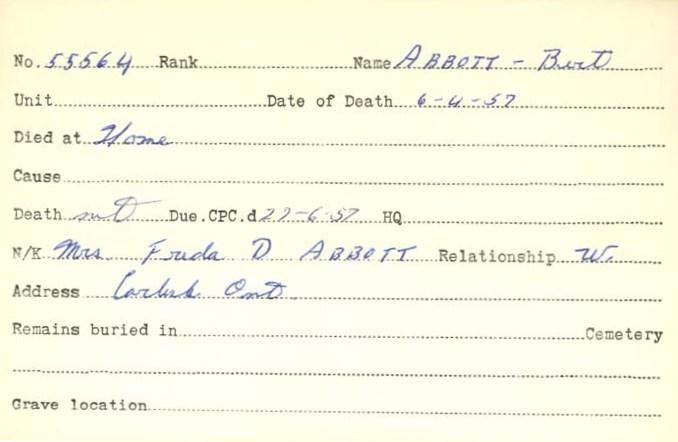 No. 55564 Rank Name ABBOTT - Bert
Unit Date of Death 6-4-57
Died at Home
Cause
Death not Due. CPC.d 27-6-57 HQ
N/K Mrs Freda D ABBOTT Relationship W.
Address Carlisle Ont
Remains buried in Cemetery
Grave location